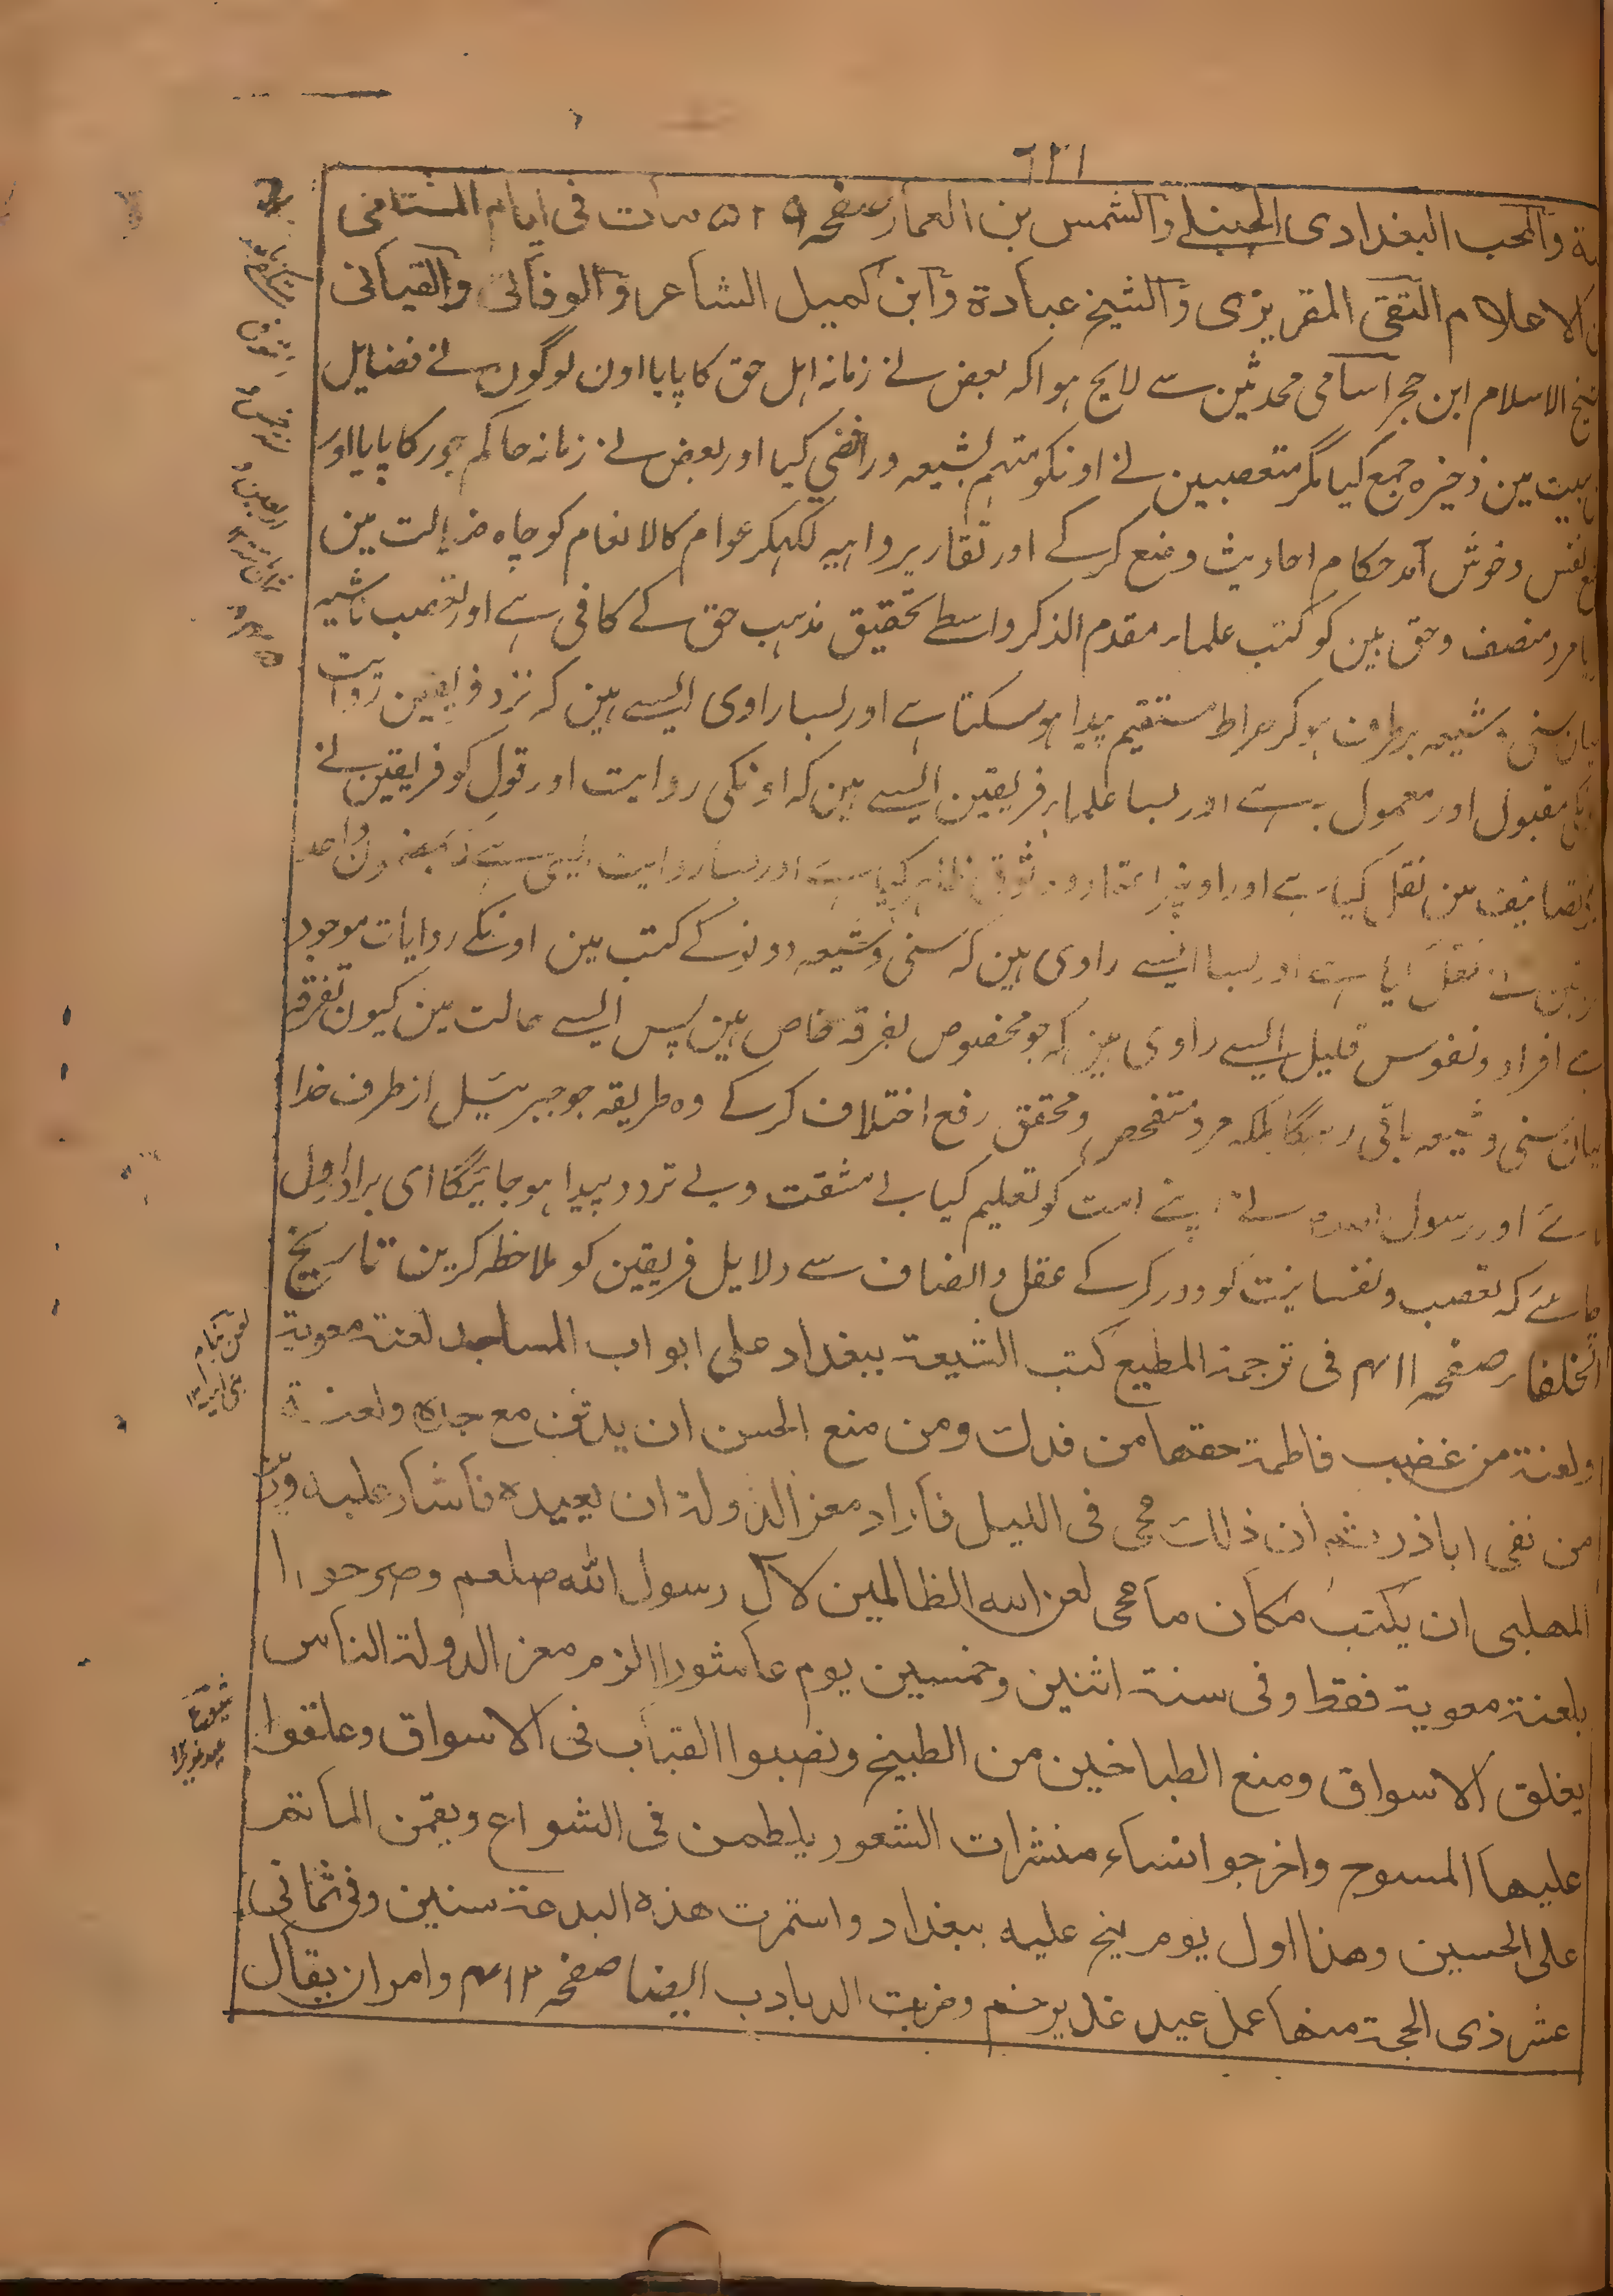 والمحب البغدادى الحنبلے والشمس بن العمار صفحہ ۵۲۹ مات فى ايام المستكفى
الاعلام التقى المقريزى والشيخ عبادة وابن كميل الشاعر والوفائى والقياتى
الاسلام ابن حجر اسامی محدثین سے لایح ہوا کہ بعض نے زمانہ اہل حق کا پایا اون لوگوں نے فضایل
بیت مین ذخیرہ جمع کیا مگر متعصبین نے اونکو متہم بشیعہ ورافضی کیا اور بعض نے زمانہ حاکم جور کا پایا اور
نفس وخوش آمد حکام احادیث وضع کرکے اور تقاریر واہیہ لکہکر عوام کالانعام کو چاہ ضلالت مین
مرد منصف وحق بین کو کتب علماء مقدم الذکر واسطے تحقیق مذہب حق کے کافی ہے اور تعصب ناشیہ
سنی وشیعہ برطرف ہوکر صراط مستقیم پیدا ہوسکتا ہے اور بسا راوی ایسے ہین کہ نزد فریقین روایت
مقبول اور معمول بہ ہے اور بسا علماء فریقین ایسے ہین کہ اونکی روایت اور قول کو فریقین نے
تصانیف مین نقل کیا ہے اور اونپر اعتماد ووثوق ظاہر کیا ہے اور بسا روایت ایسی ہے واحد
نقل کیا ہے اور بسا ایسے راوی ہین کہ سنی وشیعہ دونو کے کتب مین اونکے روایات موجود
افراد ونفوس قلیل ایسے راوی ہین کہ جو مخصوص بفرقہ خاص ہین پس ایسے حالت مین کیون تفرقہ
سنی وشیعہ باقی رہیگا بلکہ مرد متفحص ومحقق رفع اختلاف کرکے وہ طریقہ جو جبرئیل از طرف خدا
اور رسول نے اپنے امت کو تعلیم کیا بے مشقت وبے تردد پیدا ہوجائیگا ای برادر
کہ تعصب ونفسانیت کو دور کرکے عقل وانصاف سے دلایل فریقین کو ملاحظہ کرین تاریخ
الخلفاء صفحہ ۴۱۱ فى ترجمة المطيع كتب الشيعة ببغداد على ابواب المساجد لعنة معوية
ولعنة من غضب فاطمة حقها من فدك ومن منع الحسن ان يدفن مع جده ولعنة
من نفى اباذر ثم ان ذلك محى فى الليل فاراد معز الدولة ان يعيده فاشار عليه
المهلبى ان يكتب مكان ما محى لعن الله الظالمين لال رسول الله صلعم وصرحوا
بلعنة معوية فقط وفى سنة اثنين وخمسين يوم عاشورا الزم معز الدولة الناس
بغلق الاسواق ومنع الطباخين من الطبيخ ونصبوا القباب فى الاسواق وعلقوا
عليها المسوح واخرجوا نساء منشرات الشعور يلطمن فى الشوارع ويقمن الماتم
على الحسين وهذا اول يوم نيح عليه ببغداد واستمرت هذه البدعة سنين وفى ثمانى
عشر ذى الحجة منها عمل عيد غدير خم وضربت الدبادب ايضا صفحہ ۴۱۲ وامر ان يقال